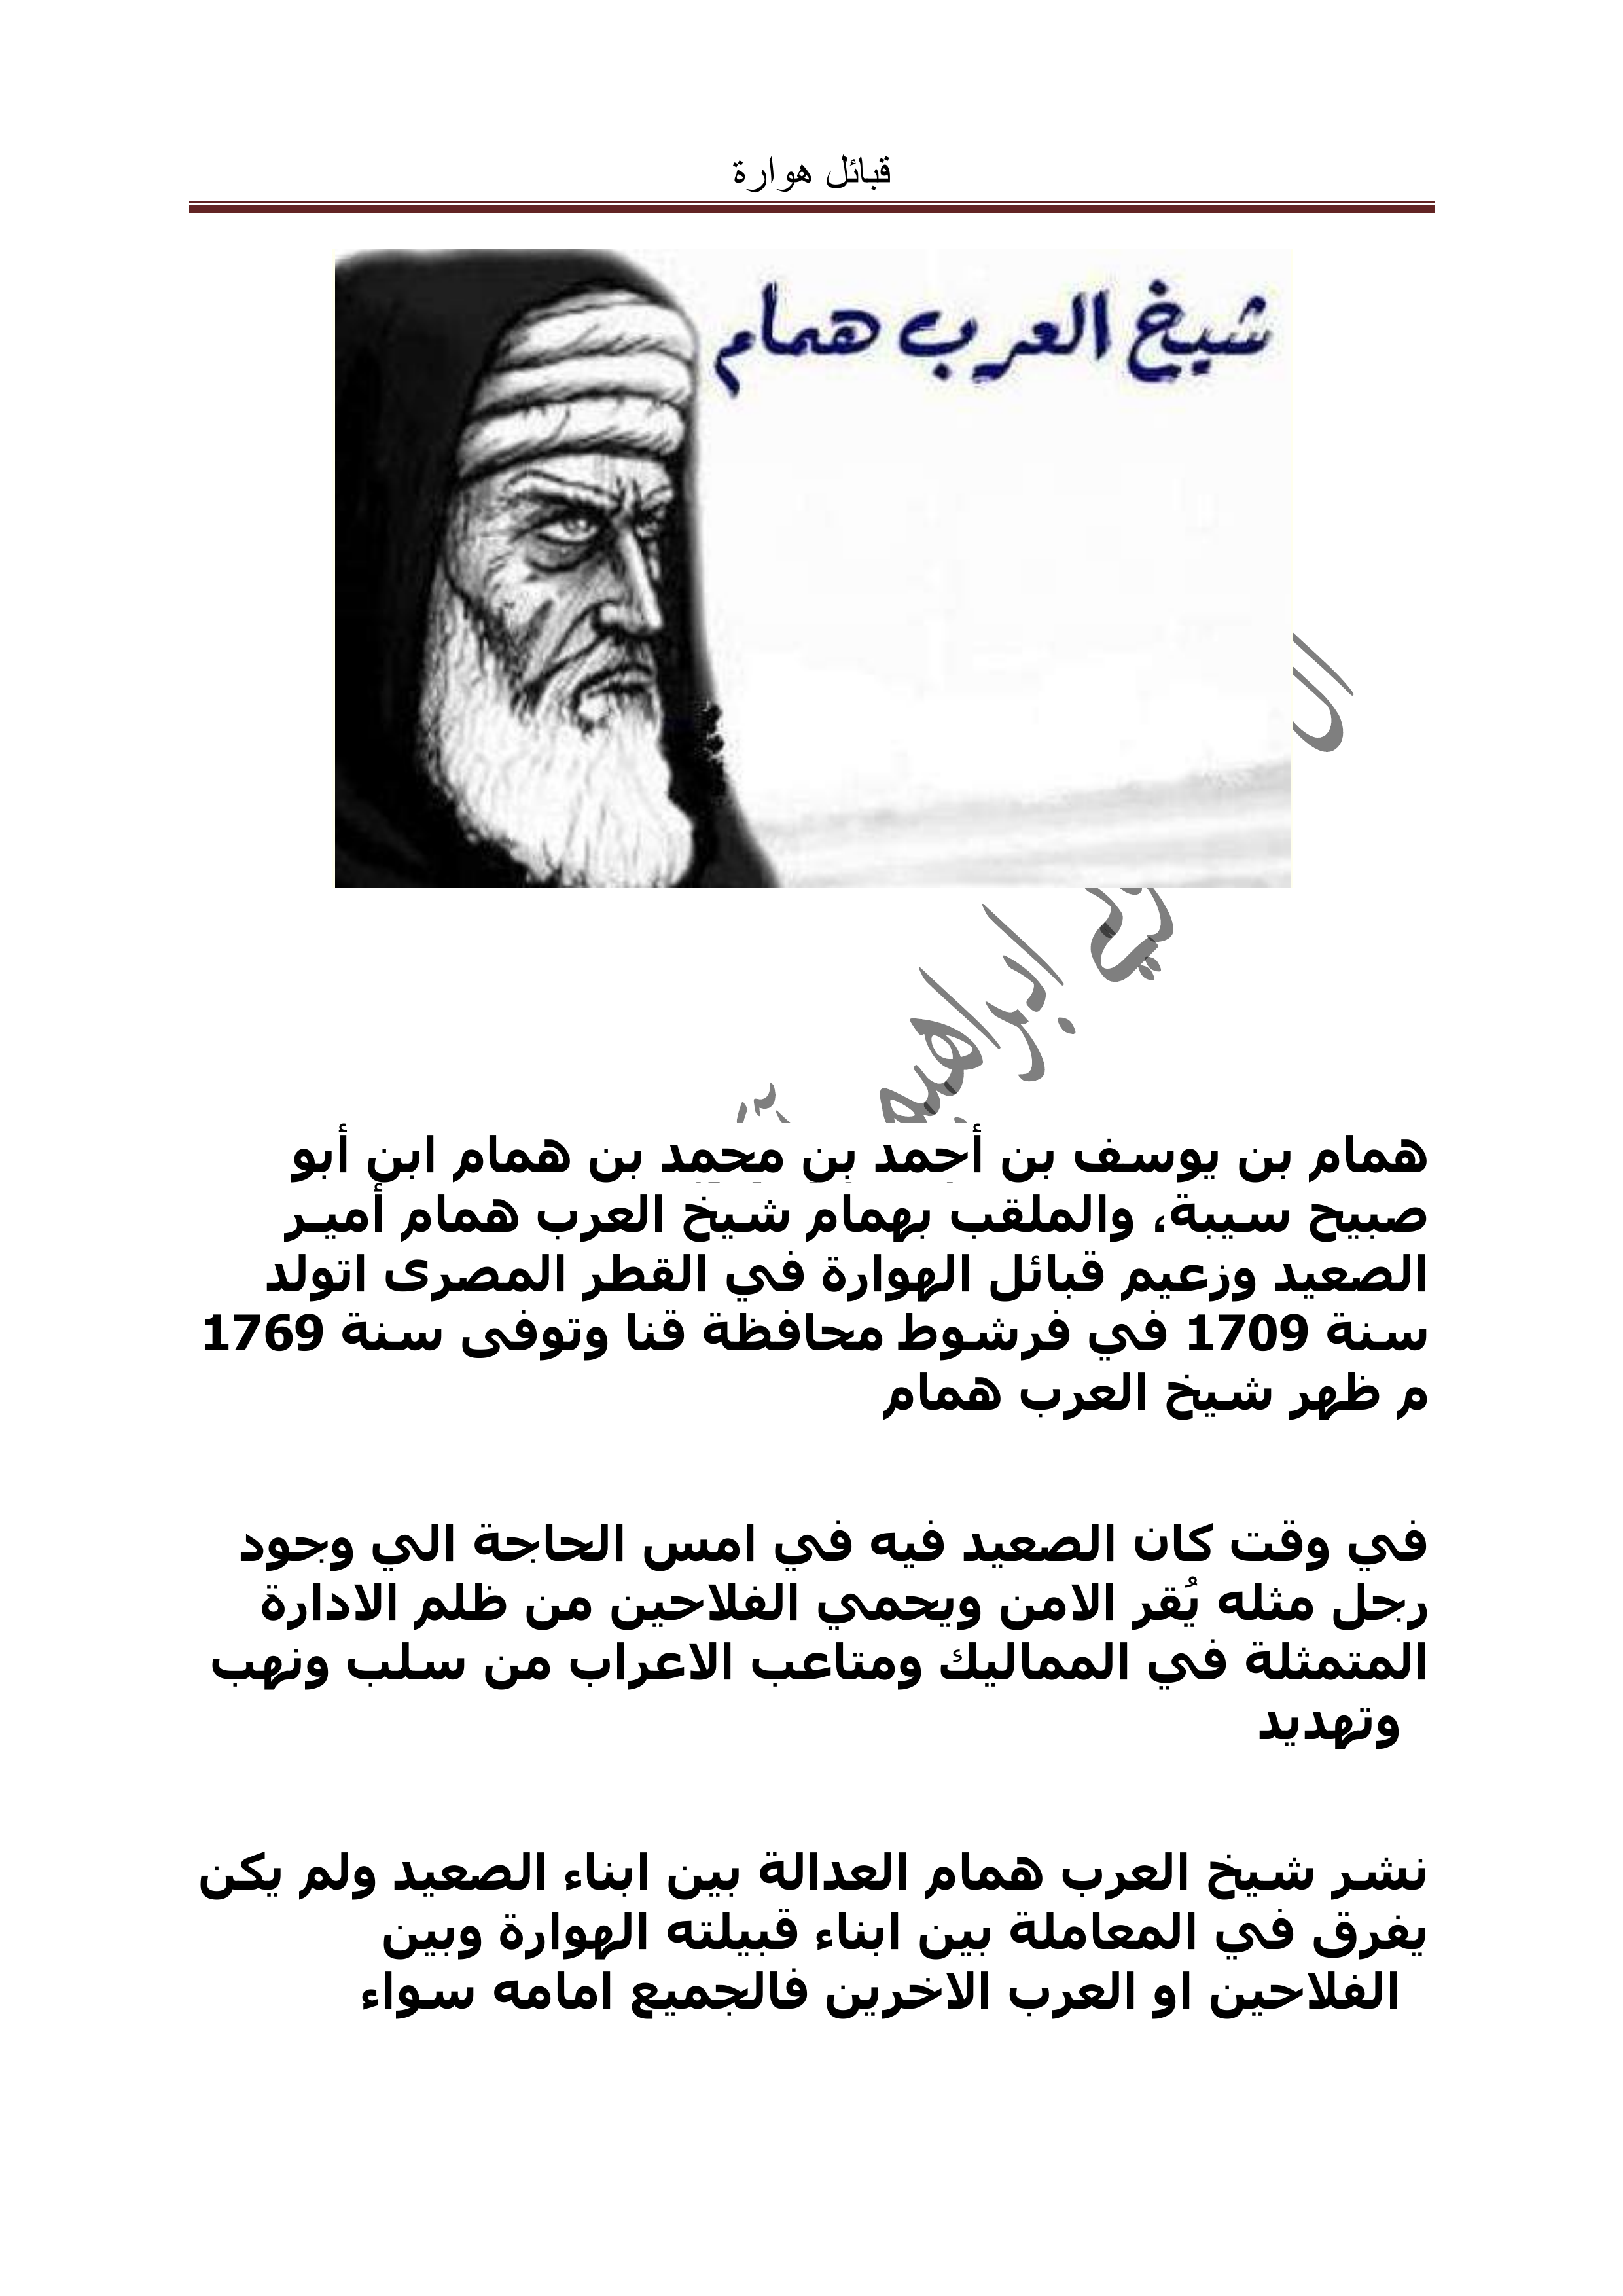 قبائل هوارة
شيخ العرب همام
ابراهيم
همام بن يوسف بن أحمد بن محمد بن همام ابن أبو
صبيح سيبة، والملقب بهمام شيخ العرب همام أمير
الصعيد وزعيم قبائل الهوارة في القطر المصرى اتولد
سنة 1709 في فرشوط محافظة قنا وتوفى سنة 1769
م ظهر شيخ العرب همام
في وقت كان الصعيد فيه في امس الحاجة الي وجود
رجل مثله يُقر الامن ويحمي الفلاحين من ظلم الادارة
المتمثلة في المماليك ومتاعب الاعراب من سلب ونهب
وتهديد
نشر شيخ العرب همام العدالة بين ابناء الصعيد ولم يكن
يفرق في المعاملة بين ابناء قبيلته الهوارة وبين
الفلاحين او العرب الاخرين فالجميع امامه سواء